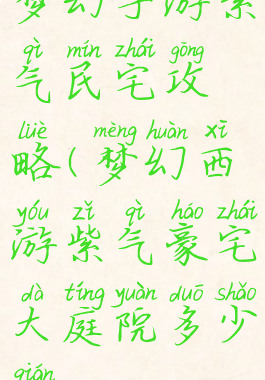 梦幻手游紫
qì mín zhái gōng
气民宅攻
lüè mèng huàn xī
略(梦幻西
yóu zǐ qì háo zhái
游紫气豪宅
dà tíng yuàn duō shǎo
大庭院多少
qián